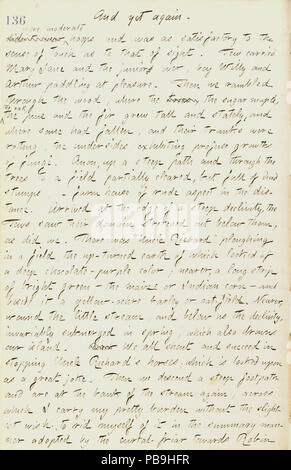 136
And yet again.
very moderate
hops and was as satisfactory to the
sense of touch as to that of sight. Few carried
Mary Jane and the juniors over, boy Willy and
Arthur paddling at pleasure. Then we rambled
through the wood, where the the sugar maple,
the oak
the pine and the fir grew tall and stately, and
where some had fallen, and their trunks were
rotting, the undersides exhibiting profuse growths
of fungi. Anon, up a steep path and through the
trees to a field partially cleared, but full of
stumps – farm house of rude aspect in the dis-
tance. Arrived at the edge of a steep declivity, the
saw their domain stretched out below them,
as did we. There was Uncle Richard ploughing
in a field the up-turned earth of which looked of
a deep chocolate-purple color; nearer, a long strip
of bright green – the maize or Indian corn – and
beside it a yellow-ochre barley or oat field. Nearer,
wound the little stream and below us the declivity,
invariably submerged in spring, which also drowns
our island. We all shout and succeed in
stopping Uncle Richard's horses, which is looked upon
as a great joke. Then we descend a steep footpath
and are at the bank of the stream again, across
which I carry my pretty burden without the slight-
est wish to rid myself of it in the summary man-
ner adopted by the curtal-friar towards Robin
alamy
Image ID: PB9HFR
www.alamy.com